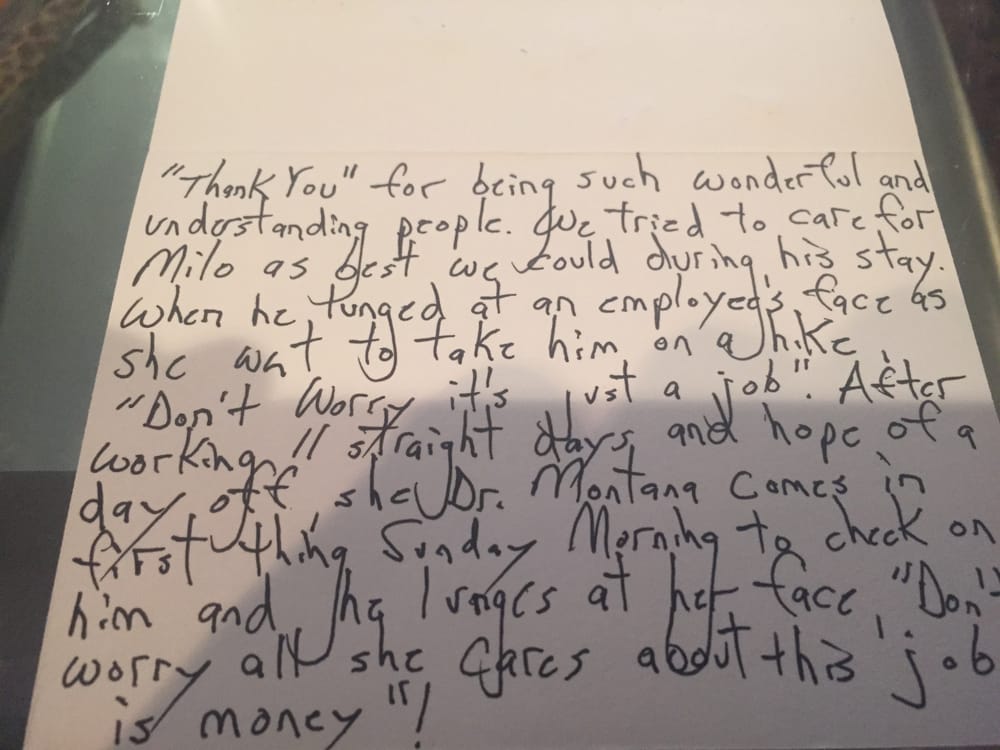 "Thank You" for being such wonderful and
understanding people. We tried to care for
Milo as best we could during his stay.
When he lunged at an employee's face as
she went to take him on a hike
"Don't Worry it's just a job". After
working 11 straight days and hope of a
day off she Dr. Montana comes in
first thing Sunday Morning to check on
him and he lunges at her face "Don't
worry all she cares about this 'job
is money"!